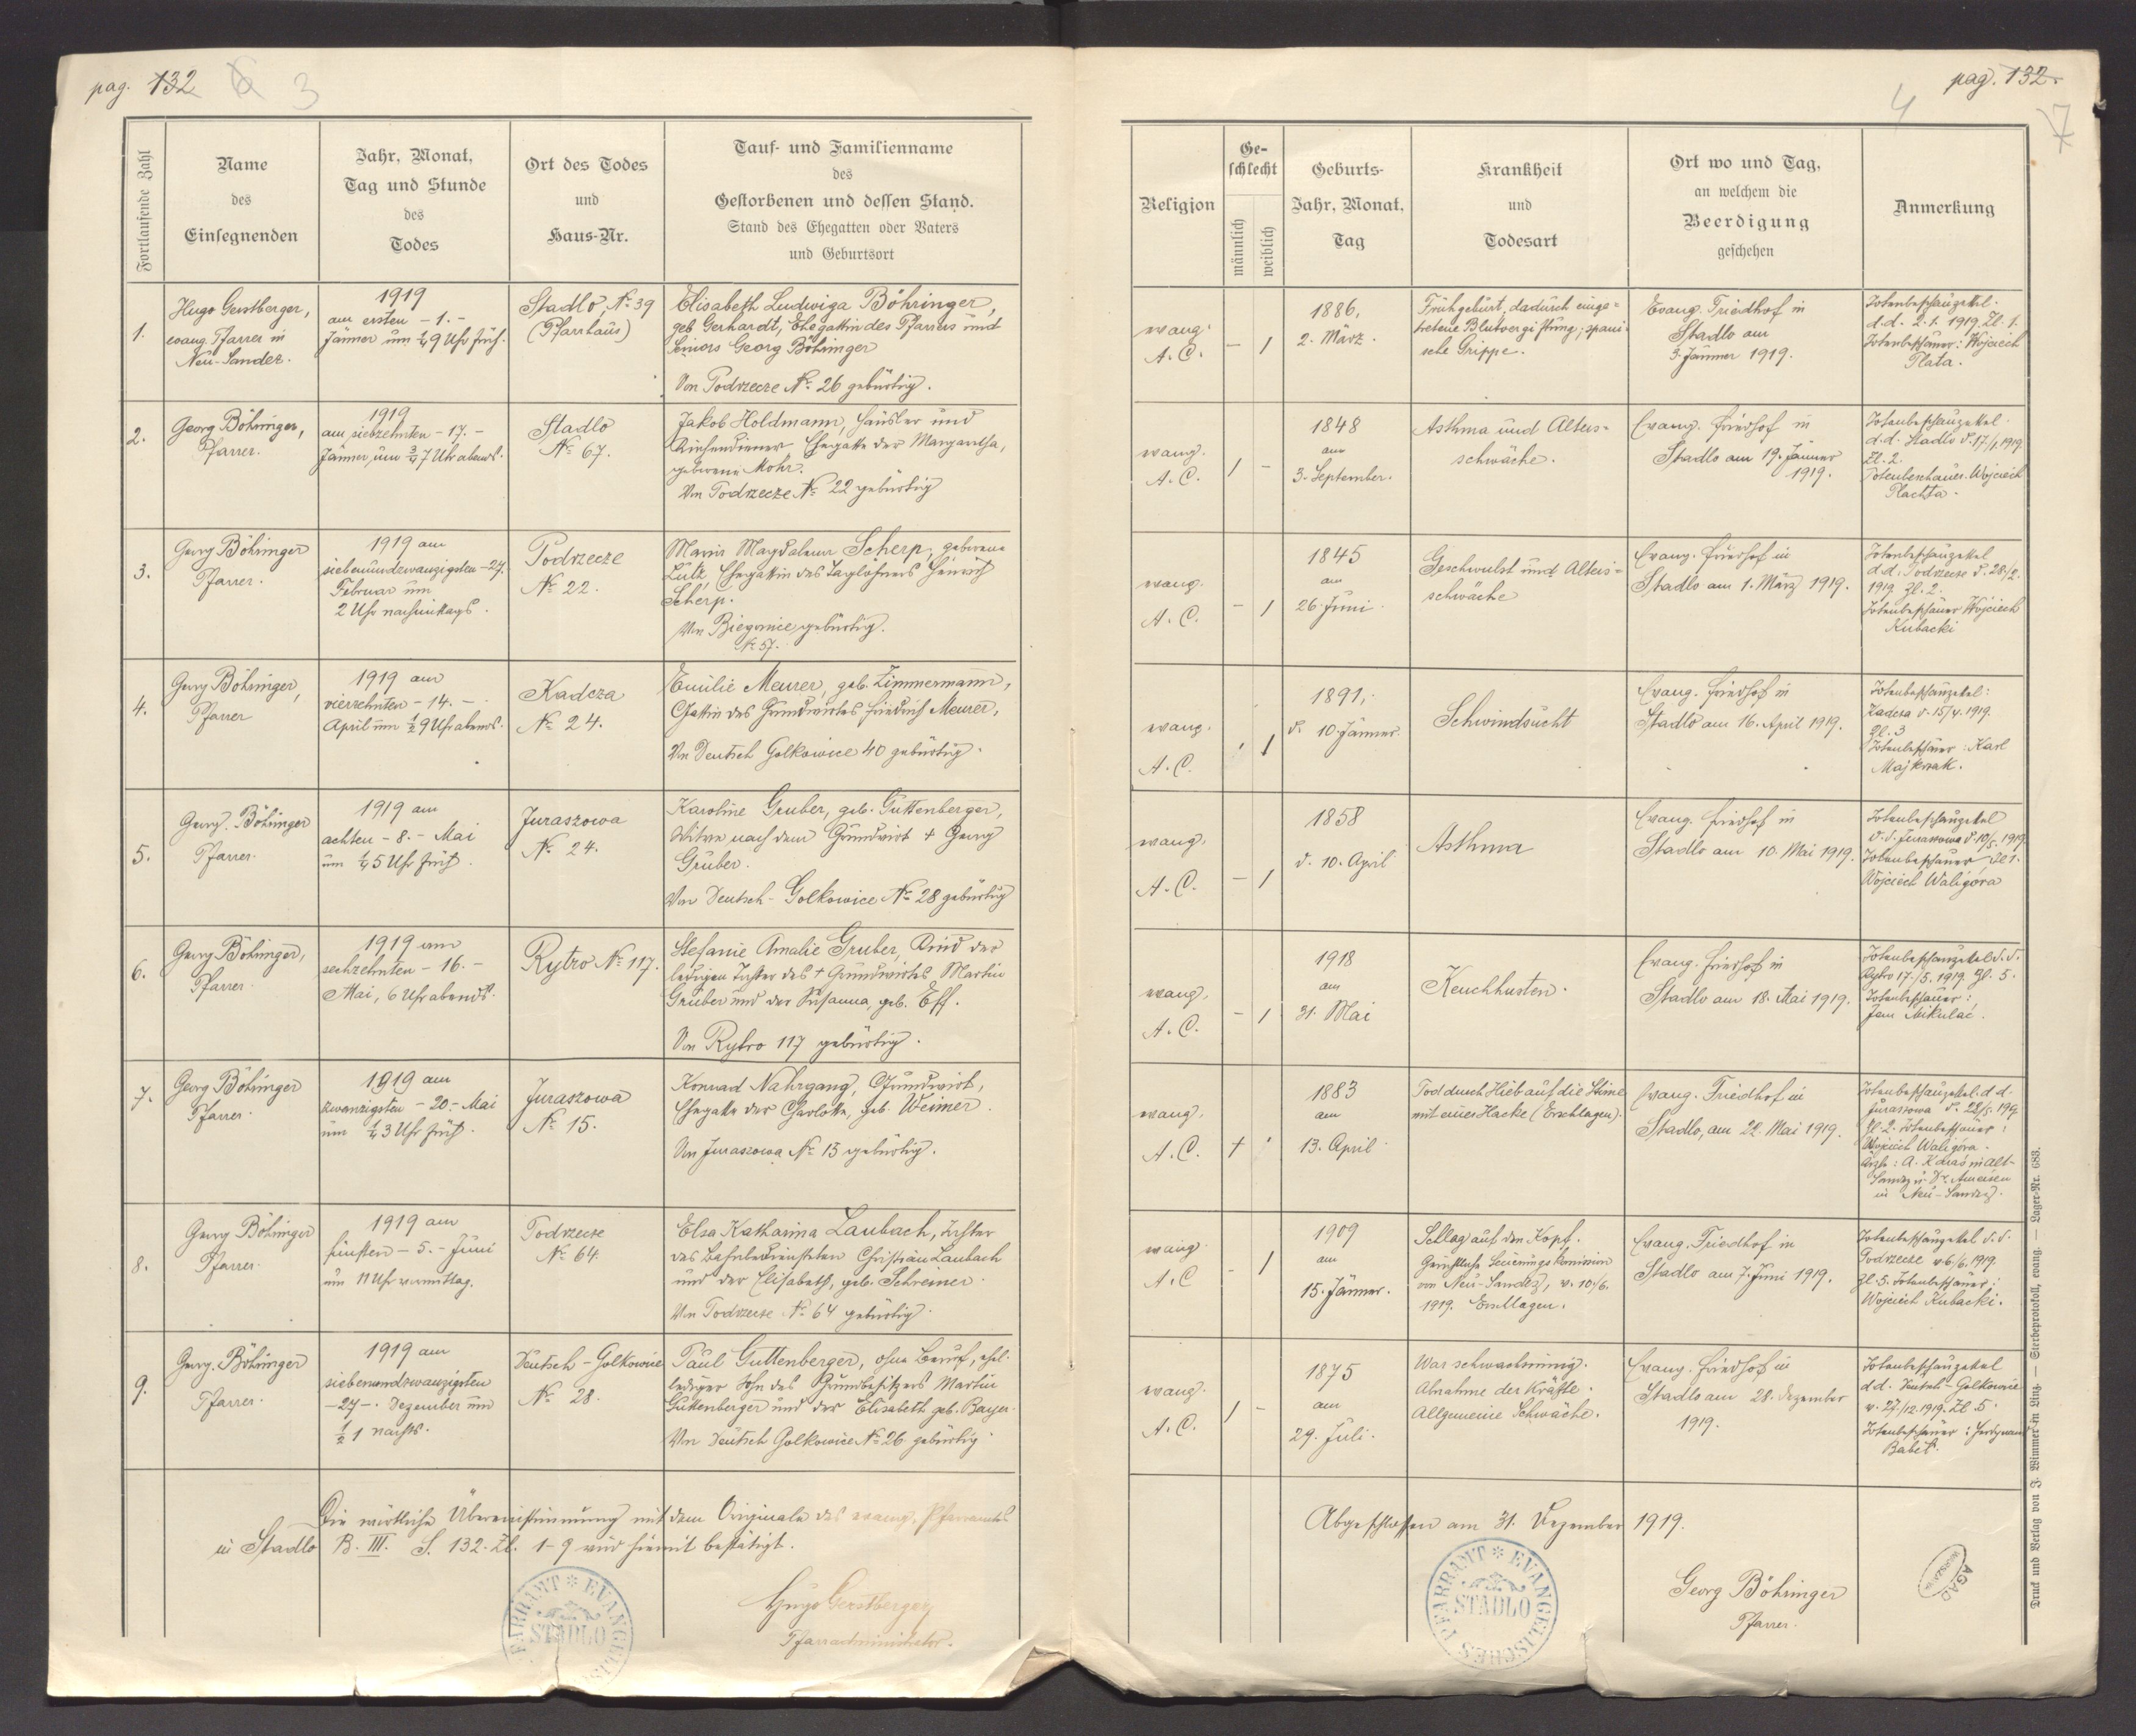 pag. 132 6 3
Fortlaufende Zahl
Name
des
Einsegnenden
Jahr, Monat,
Tag und Stunde
des
Todes
Ort des Todes
und
Haus-Nr.
Tauf- und Familienname
des
Gestorbenen und dessen Stand.
Stand des Ehegatten oder Vaters
und Geburtsort
1.
Hugo Gerstberger,
evang. Pfarrer in
Neu-Sandez.
1919
am ersten - 1. -
Jänner um ¼9 Uhr früh.
Stadlo, No 39
(Pfarrhaus)
Elisabeth Ludwiga Böhringer,
geb. Gerhardt, Ehegattin des Pfarrers und
Seniors Georg Böhringer
Von Podrzecze No 26 gebürtig.
2.
Georg Böhringer,
Pfarrer.
1919
am siebzehnten - 17. -
Jänner, um ¾7 Uhr abends.
Stadlo
No 67.
Jakob Holdmann, Häusler und
Kirchendiener Ehegatte der Margaretha,
geborene Mohr.
Von Podrzecze No 22 gebürtig
3.
Georg Böhringer
Pfarrer.
1919 am
siebenundzwanzigsten - 27.
Februar um
2 Uhr nachmittags.
Podrzecze
No 22.
Maria Magdalena Scherp, geborene
Lutz, Ehegattin des Taglöhners Heinrich
Scherp.
Von Biegonice gebürtig.
No 57.
4.
Georg Böhringer,
Pfarrer
1919 am
vierzehnten - 14. -
April um ½9 Uhr abends.
Kadcza
No 24.
Emilie Meurer, geb. Zimmermann,
Gattin des Grundwirtes Friedrich Meurer,
Von Deutsch Golkowice 40 gebürtig.
5.
Georg Böhringer
Pfarrer.
1919 am
achten - 8. - Mai
um ¼5 Uhr früh.
Juraszowa
No 24.
Karoline Gruber, geb. Guttenberger,
Witwe nach dem Grundwirt + Georg
Gruber.
Von Deutsch-Golkowice No 28 gebürtig
6.
Georg Böhringer,
Pfarrer.
1919 am
sechzehnten - 16. -
Mai, 6 Uhr abends.
Rytro No 117.
Stefanie Amalie Gruber, Kind der
ledigen Tochter des + Grundwirtes Martin
Gruber und der Susanna, geb. Eff.
Von Rytro 117 gebürtig.
7.
Georg Böhringer
Pfarrer.
1919 am
zwanzigsten - 20. - Mai
um ¼3 Uhr früh.
Juraszowa
No 15.
Konrad Nahrgang, Grundwirt,
Ehegatte der Charlotte, geb. Weimer.
Von Juraszowa No 15 gebürtig.
8.
Georg Böhringer
Pfarrer.
1919 am
fünften - 5. - Juni
um 11 Uhr vormittag.
Podrzecze
No 64.
Elsa Katharina Laubach, Tochter
des Bahnbediensteten Christian Laubach
und der Elisabeth, geb. Schreiner.
Von Podrzecze No 64 gebürtig.
9.
Georg Böhringer
Pfarrer.
1919 am
siebenundzwanzigsten
- 27 - . Dezember um
½ 1 nachts.
Deutsch-Golkowice
No 28.
Paul Guttenberger, ohne Beruf, ehel.
lediger Sohn des Grundbesitzers Martin
Guttenberger und der Elisabeth geb. Bayer.
Von Deutsch Golkowice No 26 gebürtig.
Die wörtliche Übereinstimmung mit dem Originale des evang. Pfarramts
in Stadlo B. III. S. 132. Zl. 1-9 wird hiemit bestätigt.
Hugo Gerstberger
Pfarradministrator.
PFARRAMT * EVANGELIS
STADLO
pag. 132.
4
7
Religion
Ge-
schlecht
männlich
weiblich
Geburts-
Jahr, Monat,
Tag
Krankheit
und
Todesart
Ort wo und Tag,
an welchem die
Beerdigung
geschehen
Anmerkung
evang.
A. C.
- 1
1886,
2. März.
Frühgeburt, dadurch einge-
tretene Blutvergiftung, spani-
sche Grippe.
Evang. Friedhof in
Stadlo am
3. Jänner 1919.
Totenbeschauzettel.
d.d. 2.1. 1919 Zl. 1.
Totenbeschauer: Wojciech
Plata.
evang.
A. C.
1 -
1848
am
3. September.
Asthma und Alters-
schwäche.
Evang. Friedhof in
Stadlo am 19. Jänner
1919.
Totenbeschauzettel
d.d. Stadlo d. 17/1. 1919
Zl. 2.
Totenbeschauer. Wojciech
Plachta.
evang.
A. C.
- 1
1845
am
26. Juni.
Geschwulst und Alters-
schwäche
Evang. Friedhof in
Stadlo am 1. März 1919.
Totenbeschauzettel
d.d. Podrzecze d. 28./2.
1919 Zl. 2.
Totenbeschauer Wojciech
Kubacki
evang.
A. C.
1
1891,
d. 10. Jänner.
Schwindsucht
Evang. Friedhof in
Stadlo am 16. April 1919.
Totenbeschauzettel:
Kadcza d. 15/4. 1919.
Zl. 3
Totenbeschauer: Karl
Majkrzak.
evang.
A. C.
- 1
1858
d. 10. April
Asthma
Evang. Friedhof in
Stadlo am 10. Mai 1919.
Totenbeschauzettel
d.d. Juraszowa d. 10/5. 1919
Totenbeschauer Zl 1.
Wojciech Waligóra
evang.
A. C.
- 1
1918
am
31. Mai
Keuchhusten.
Evang. Friedhof in
Stadlo am 18. Mai 1919.
Totenbeschauzettel d.d.
Rytro 17./5. 1919 Zl. 5.
Totenbeschauer:
Jan Mikulai.
evang.
A. C.
+
1883
am
13. April
Tod durch Hieb auf die Stirne
mit einer Hacke (Erschlagen).
Evang. Friedhof in
Stadlo, am 22. Mai 1919.
Totenbeschauzettel. d.d.
Juraszowa d. 22/5. 199
Zl. 2. Totenbeschauer:
Wojciech Waligóra.
Ärzte: A. in Alt-
Sandez u. Dr. Ameisen
in Neu-Sandez.
evang.
A. C
- 1
1909
am
15. Jänner.
Schlag auf den Kopf.
Gerichtliche Kommission
von Neu-Sandez, v. 10./6.
1919.
Evang. Friedhof in
Stadlo am 7. Juni 1919.
Totenbeschauzettel d.d.
Podrzecze v. 6/6. 1919.
Zl. 5. Totenbeschauer:
Wojciech Kubacki.
evang.
A. C.
1 -
1875
am
29. Juli.
War schwachsinnig.
Abnahme der Kräfte.
Allgemeine Schwäche.
Evang. Friedhof in
Stadlo am 28. Dezember
1919.
Totenbeschauzettel
d.d. Deutsch-Golkowice
v. 27./12. 1919. Zl. 5.
Totenbeschauer:
Abgeschlossen am 31. Dezember 1919.
Georg Böhringer
Pfarrer.
EVANGELISCHES PFARRAMT *
STADLO
AGAD
WARSZAWA
Druck und Verlag von J. Wimmer in Linz. — Sterbeprotokoll, evang. — Lager-Nr. 683.